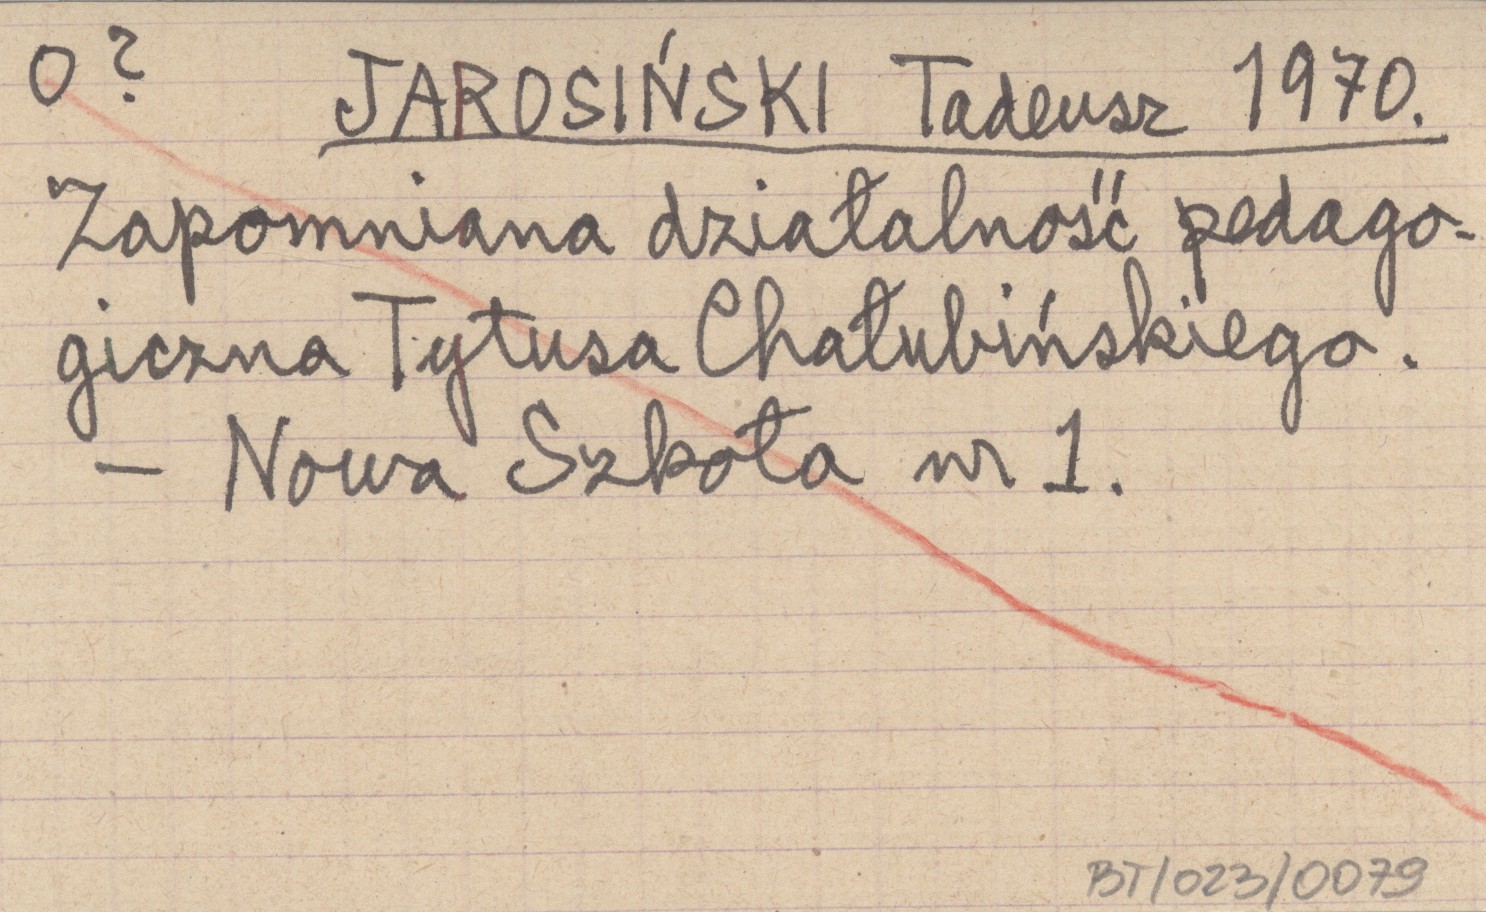 O? JAROSIŃSKI Tadeusz 1970.
Zapomniana działalność pedago-
giczna Tytusa Chałubińskiego.
— Nowa Szkoła nr 1.
BT/023/0079